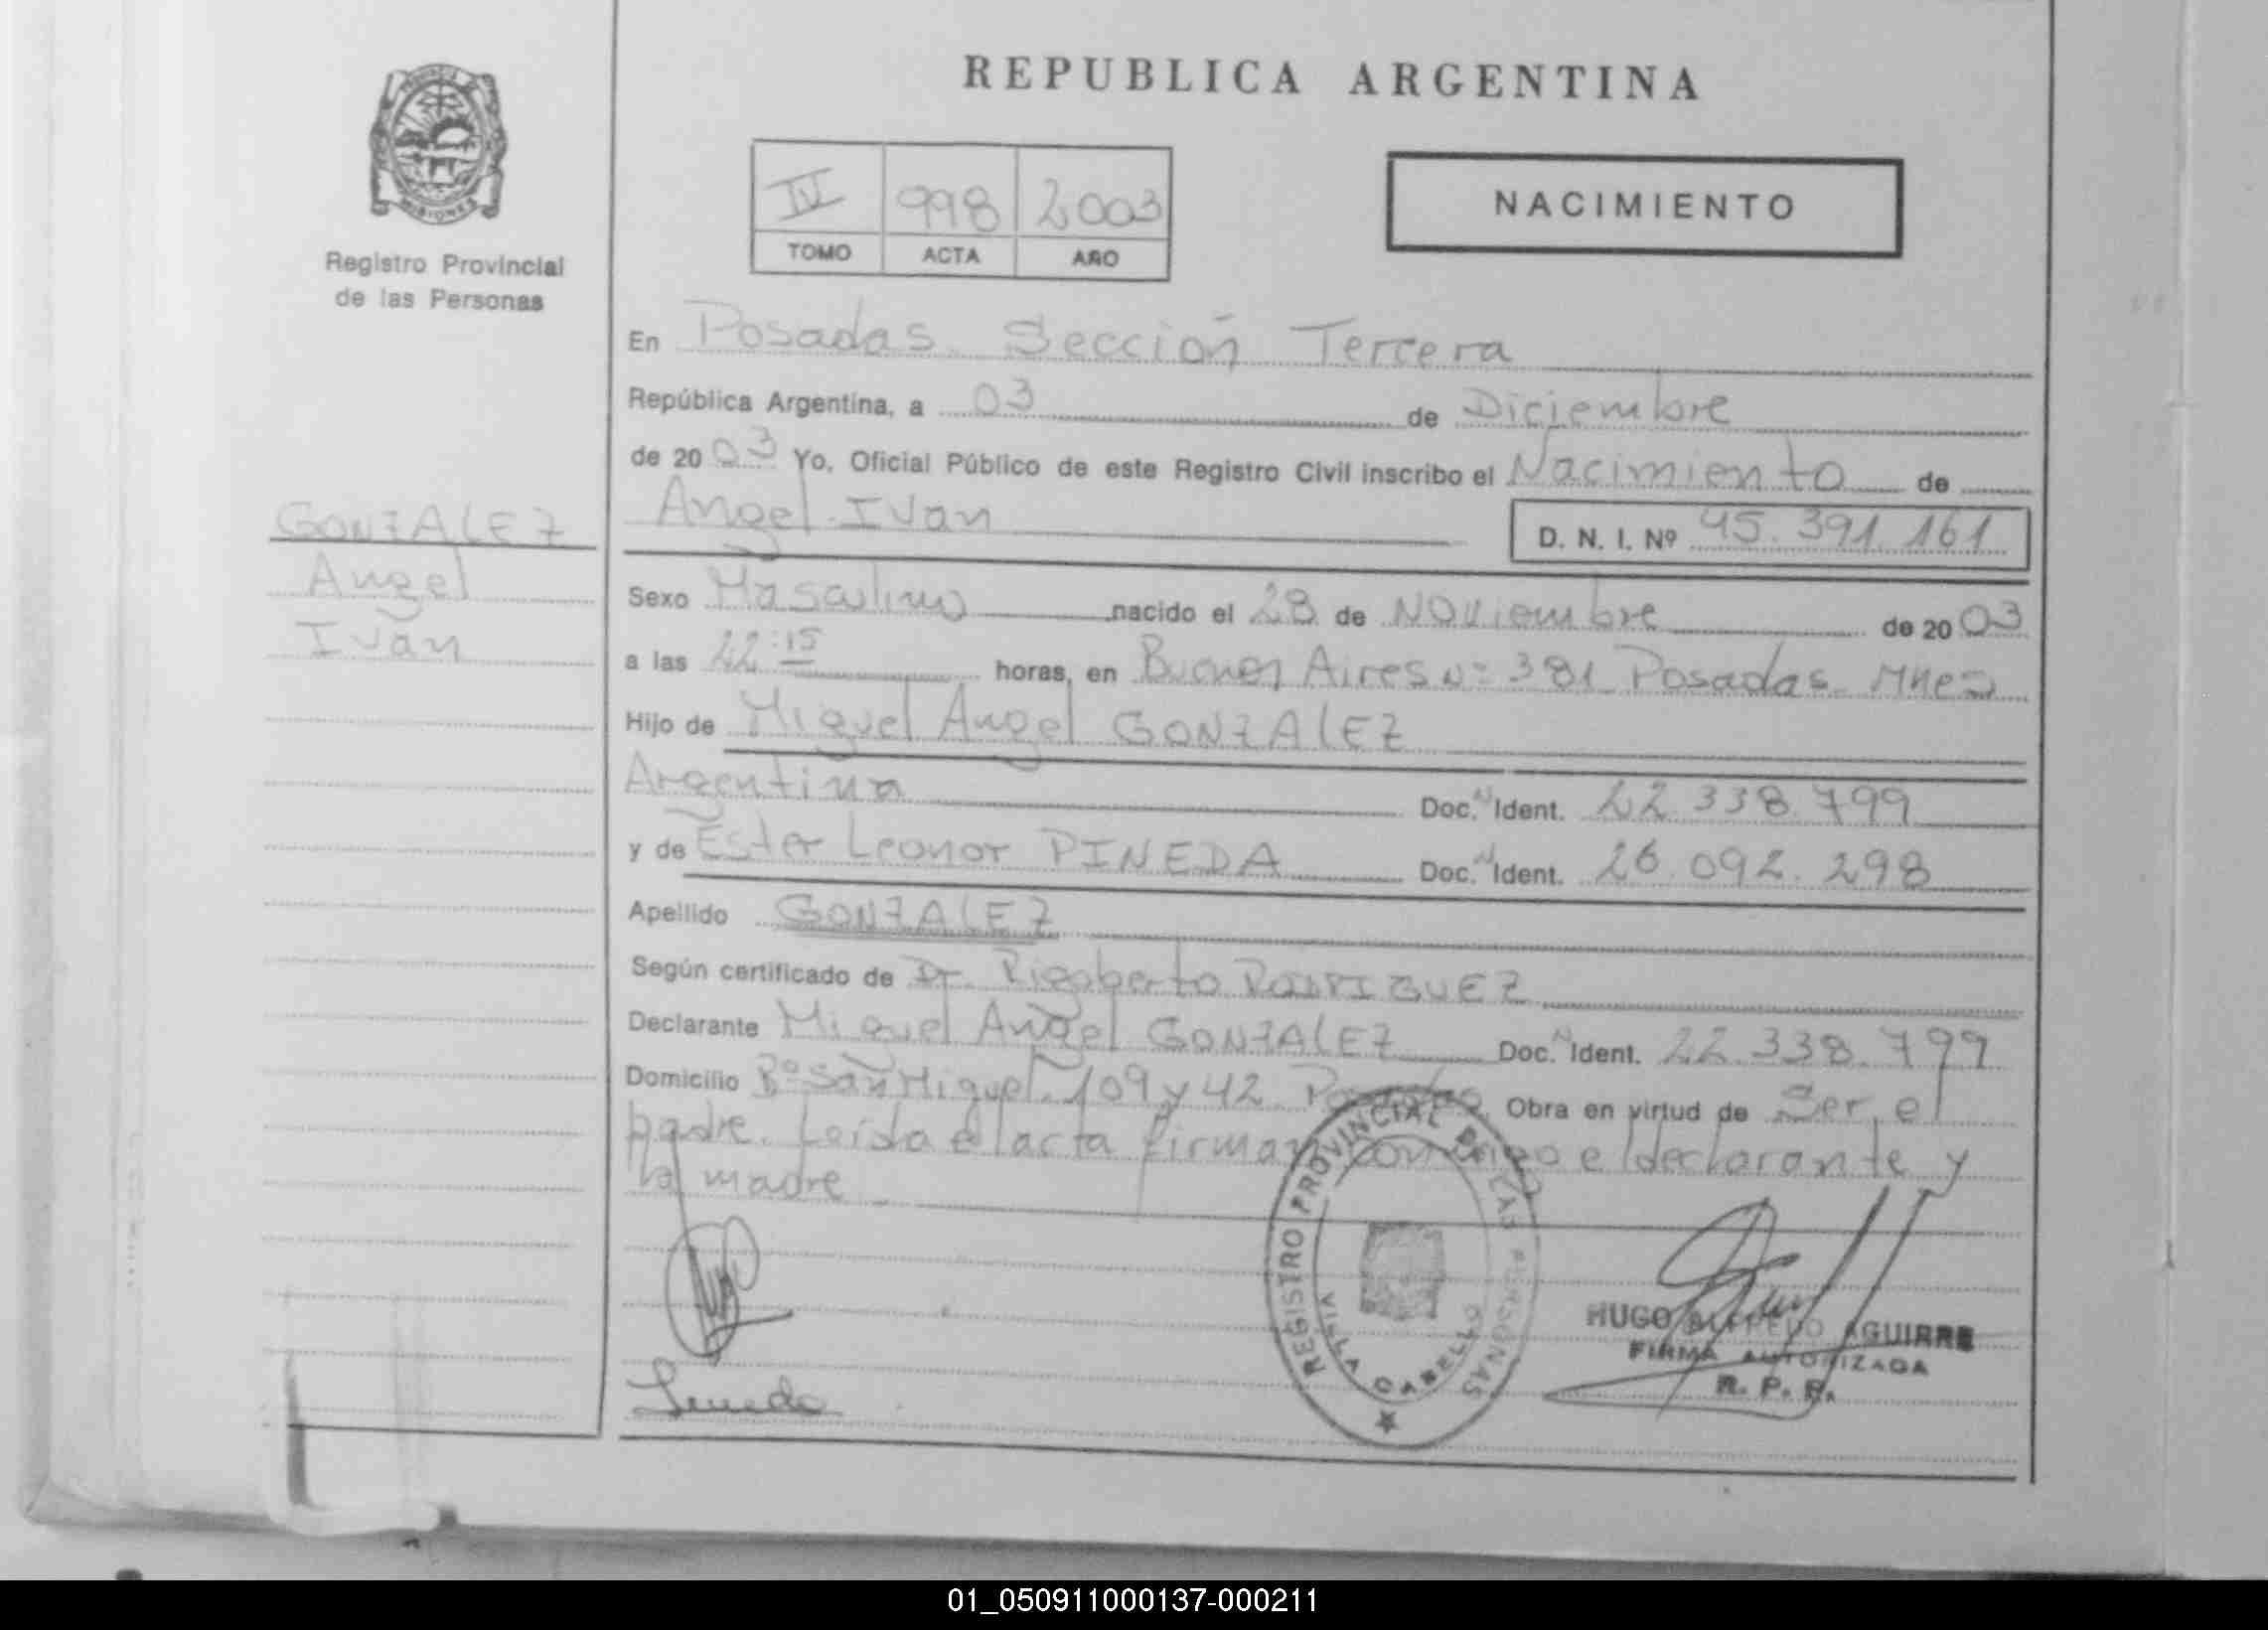 REPUBLICA ARGENTINA
MISIONES
Registro Provincial
de las Personas
IV 998 2003
TOMO ACTA AÑO
NACIMIENTO
En Posadas Sección Tercera
República Argentina, a 03 de Diciembre
de 2003 Yo, Oficial Público de este Registro Civil inscribo el Nacimiento de
Angel Ivan
D. N. I. Nº 45.391.161
GONZALEZ
Angel
Ivan
Sexo Masculino nacido el 28 de Noviembre de 2003
a las 22:15 horas, en Buenos Aires Nº 381 Posadas Mnes
Hijo de Miguel Angel GONZALEZ
Argentina Doc. N Ident. 22.338.799
y de Ester Leonor PINEDA Doc. N Ident. 26.092.298
Apellido GONZALEZ
Según certificado de Dr. Rigoberto RODRIGUEZ
Declarante Miguel Angel GONZALEZ Doc. N Ident. 22.338.799
Domicilio Bº San Miguel 109 y 42 Posadas Obra en virtud de Ser el
padre. Leída el acta firman conmigo el declarante y
la madre
REGISTRO PROVINCIAL DE LAS PERSONAS
VILLA CABELLO
HUGO ALFREDO AGUIRRE
FIRMA AUTORIZADA
R. P. P.
01_050911000137-000211